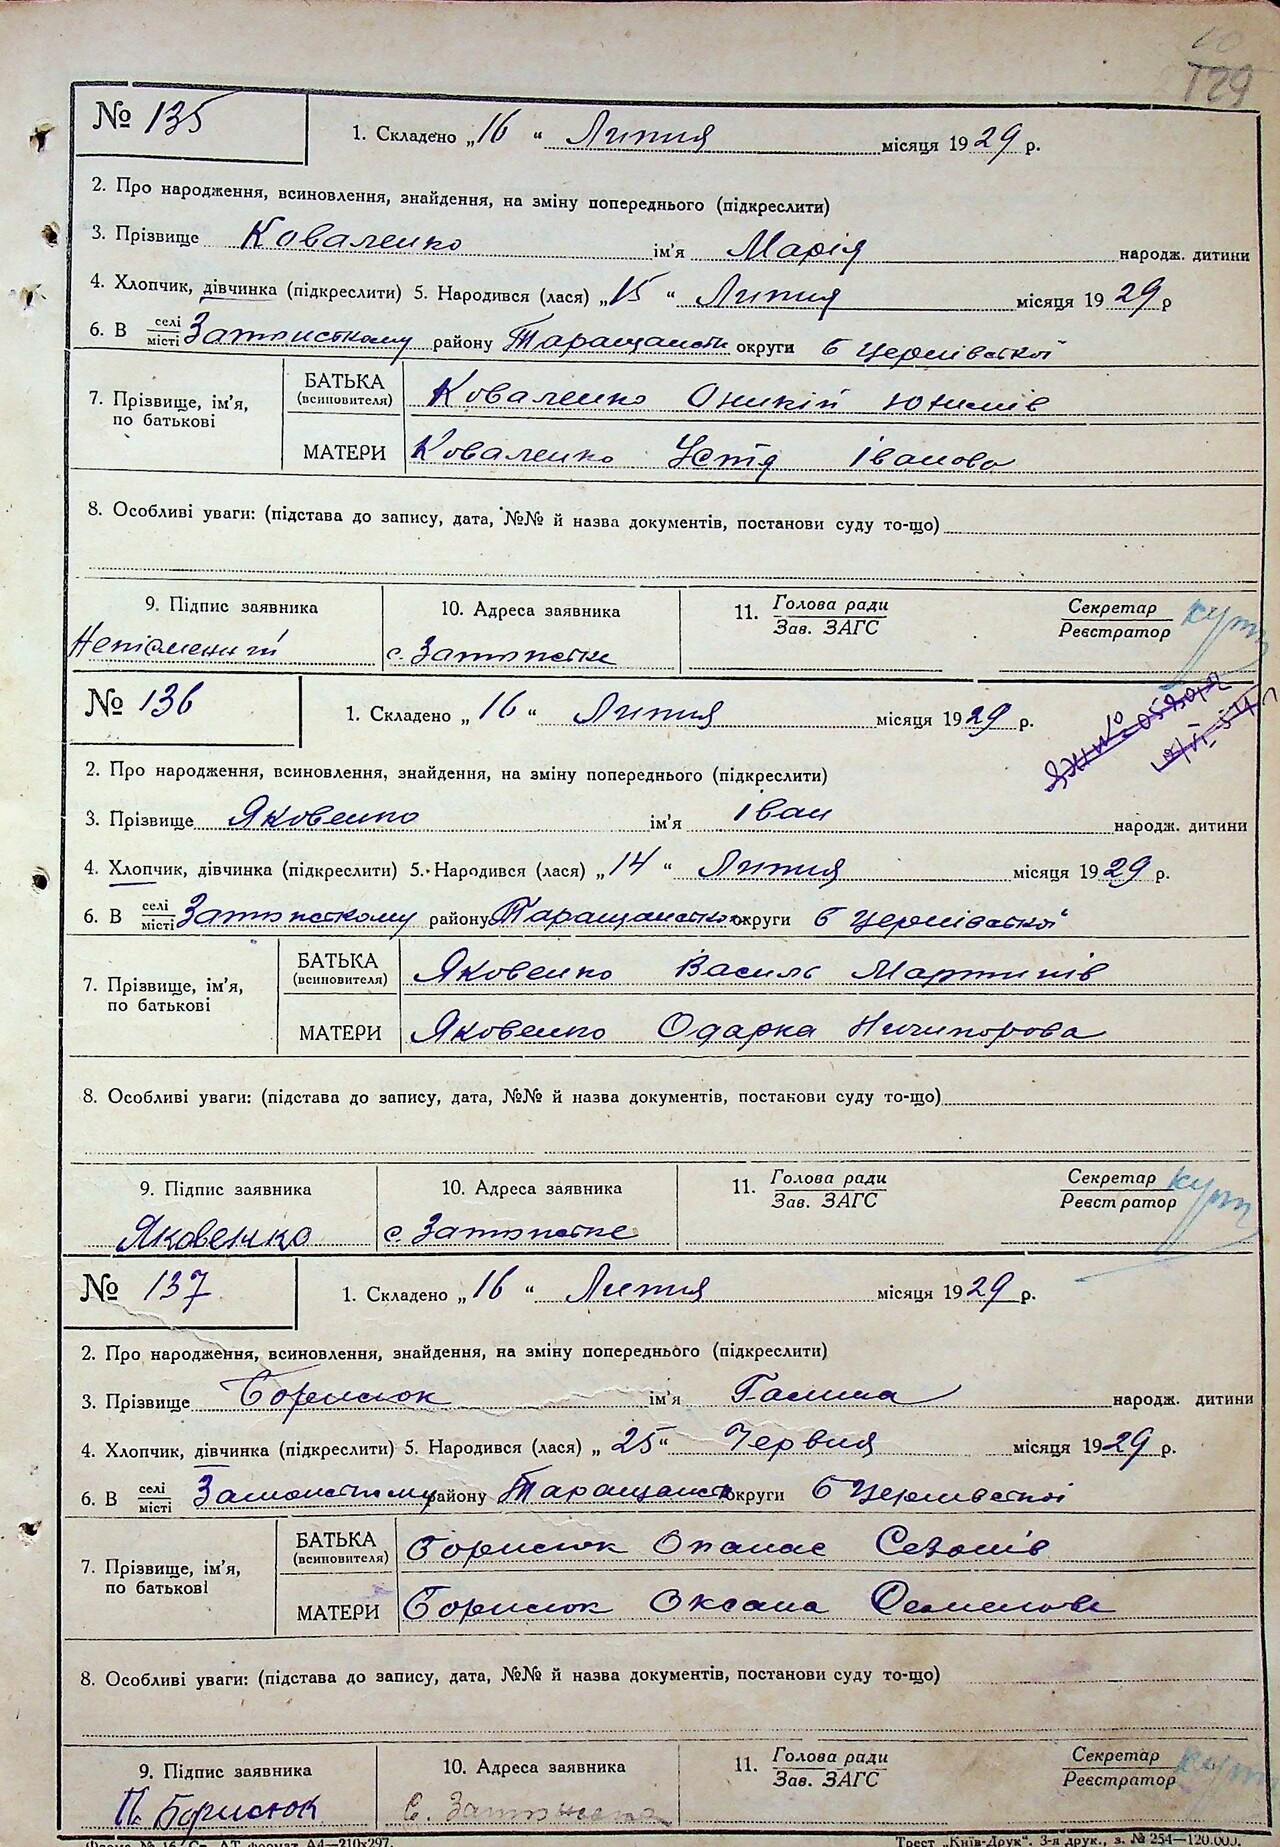 129
№ 135
1. Складено „16“ Липня місяця 1929 р.
2. Про народження, всиновлення, знайдення, на зміну попереднього (підкреслити)
3. Прізвище Коваленко ім'я Марія народж. дитини
4. Хлопчик, дівчинка (підкреслити) 5. Народився (лася) „15“ Липня місяця 1929 р
6. В селі місті району Таращанськ округи Б Церківської
7. Прізвище, ім'я, по батькові
БАТЬКА (всиновителя) Коваленко Оникій Юхимів
МАТЕРИ Коваленко Устя Іванова
8. Особливі уваги: (підстава до запису, дата, №№ й назва документів, постанови суду то-що)
9. Підпис заявника 10. Адреса заявника 11. Голова ради Зав. ЗАГС Секретар Реєстратор
Неписменний с.
№ 136
1. Складено „16“ Липня місяця 1929 р.
2. Про народження, всиновлення, знайдення, на зміну попереднього (підкреслити)
3. Прізвище Яковенко ім'я Іван народж. дитини
4. Хлопчик, дівчинка (підкреслити) 5. Народився (лася) „14“ Липня місяця 1929 р.
6. В селі місті району Таращанського округи Б Церківської
7. Прізвище, ім'я, по батькові
БАТЬКА (всиновителя) Яковенко Василь Мартинів
МАТЕРИ Яковенко Одарка Ничипорова
8. Особливі уваги: (підстава до запису, дата, №№ й назва документів, постанови суду то-що)
9. Підпис заявника 10. Адреса заявника 11. Голова ради Зав. ЗАГС Секретар Реєстратор
Яковенко с.
№ 137
1. Складено „16“ Липня місяця 1929 р.
2. Про народження, всиновлення, знайдення, на зміну попереднього (підкреслити)
3. Прізвище Борисюк ім'я Галина народж. дитини
4. Хлопчик, дівчинка (підкреслити) 5. Народився (лася) „25“ Червня місяця 1929 р.
6. В селі місті району Таращанськ округи Б Церківської
7. Прізвище, ім'я, по батькові
БАТЬКА (всиновителя) Борисюк Опанас
МАТЕРИ Борисюк Оксана Семенова
8. Особливі уваги: (підстава до запису, дата, №№ й назва документів, постанови суду то-що)
9. Підпис заявника 10. Адреса заявника 11. Голова ради Зав. ЗАГС Секретар Реєстратор
П. Борисюк С.
Форма № 16/ Ст. АТ формат А4—210х297.
Трест „Київ-Друк“. 3-я друк., з. № 254—120.000.